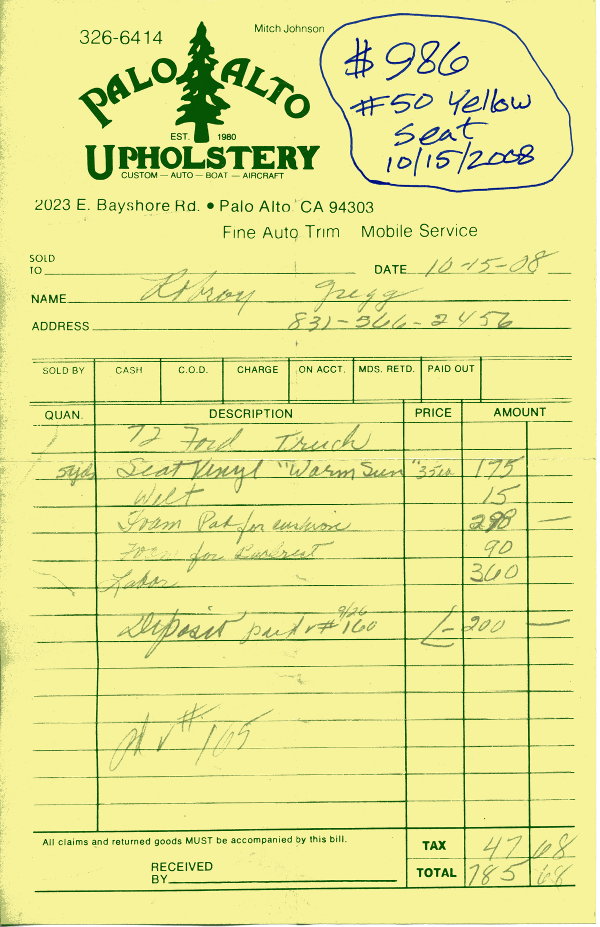 326-6414
Mitch Johnson
PALO ALTO
EST. 1980
UPHOLSTERY
CUSTOM — AUTO — BOAT — AIRCRAFT
$986
#50 Yellow
Seat
10/15/2008
2023 E. Bayshore Rd. • Palo Alto, CA 94303
Fine Auto Trim Mobile Service
SOLD
TO
DATE 10-15-08
NAME Robroy Gregg
ADDRESS 831-566-2456
SOLD BY CASH C.O.D. CHARGE ON ACCT. MDS. RETD. PAID OUT
QUAN. DESCRIPTION PRICE AMOUNT
72 Ford Truck
5yds Seat Vinyl "Warm Sun" 35 175
Welt 15
Foam Pad for cushion 298 —
for 90
Labor 360
Deposit paid 9/26 v# 160 -200 —
pd v#. 165
All claims and returned goods MUST be accompanied by this bill.
TAX 47 68
RECEIVED
BY
TOTAL 785 68